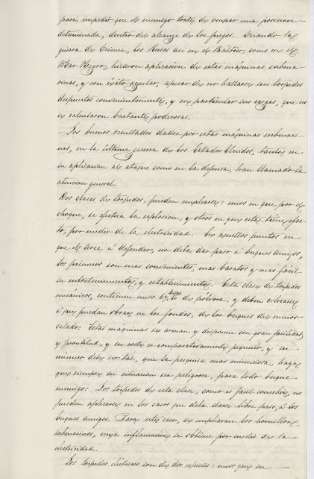 para impedir que el enemigo trate de ocupar una posicion
determinada, dentro del alcance de los fuegos. Durante la
guerra de Crimea, los Rusos asi en el Baltico, como en el
Mar Negro, hicieron aplicacion de estas máquinas submarinas
y con éxito regular, apesar de no hallarse los torpedos
dispuestos convenientemente, y en particular sus cargas, que no
se calcularon bastante poderosas.
Los buenos resultados dados por estas máquinas submarinas,
en la última guerra de los Estados Unidos, tanto en
su aplicacion al ataque como en la defensa, han llamado la
atencion general.
Dos clases de torpedos, pueden emplearse: unos en que, por el
choque, se efectua la explosion, y otros en que esta tiene efecto,
por medio de la electricidad. En aquellos puntos en
que el paso a defender, no deba dar paso á buques amigos,
los primeros son mas convenientes, mas baratos y mas fácil
su entretenimiento, y establecimiento. Esta clase de torpedos
mecánicos, contienen unos de pólvora, y deben colocarse
de modo que puedan obrar en los fondos, de los buques de menor
calado. Estas máquinas se arman y disponen con gran facilidad
y prontitud, y su coste es comparativamente pequeño, y su
número debe ser tal, que la pequeña mas minuciosa, haga
que siempre su situacion sea peligrosa, para todo buque
enemigo. Los torpedos de esta clase, como es facil concebir, no
pueden aplicarse en los casos que deba darse libre paso, á los
buques amigos. Para este caso, se emplearan los hornillos
submarinos, cuya inflamacion se obtiene por medio de la
electricidad.
Los torpedos eléctricos son de dos especies: unos que en